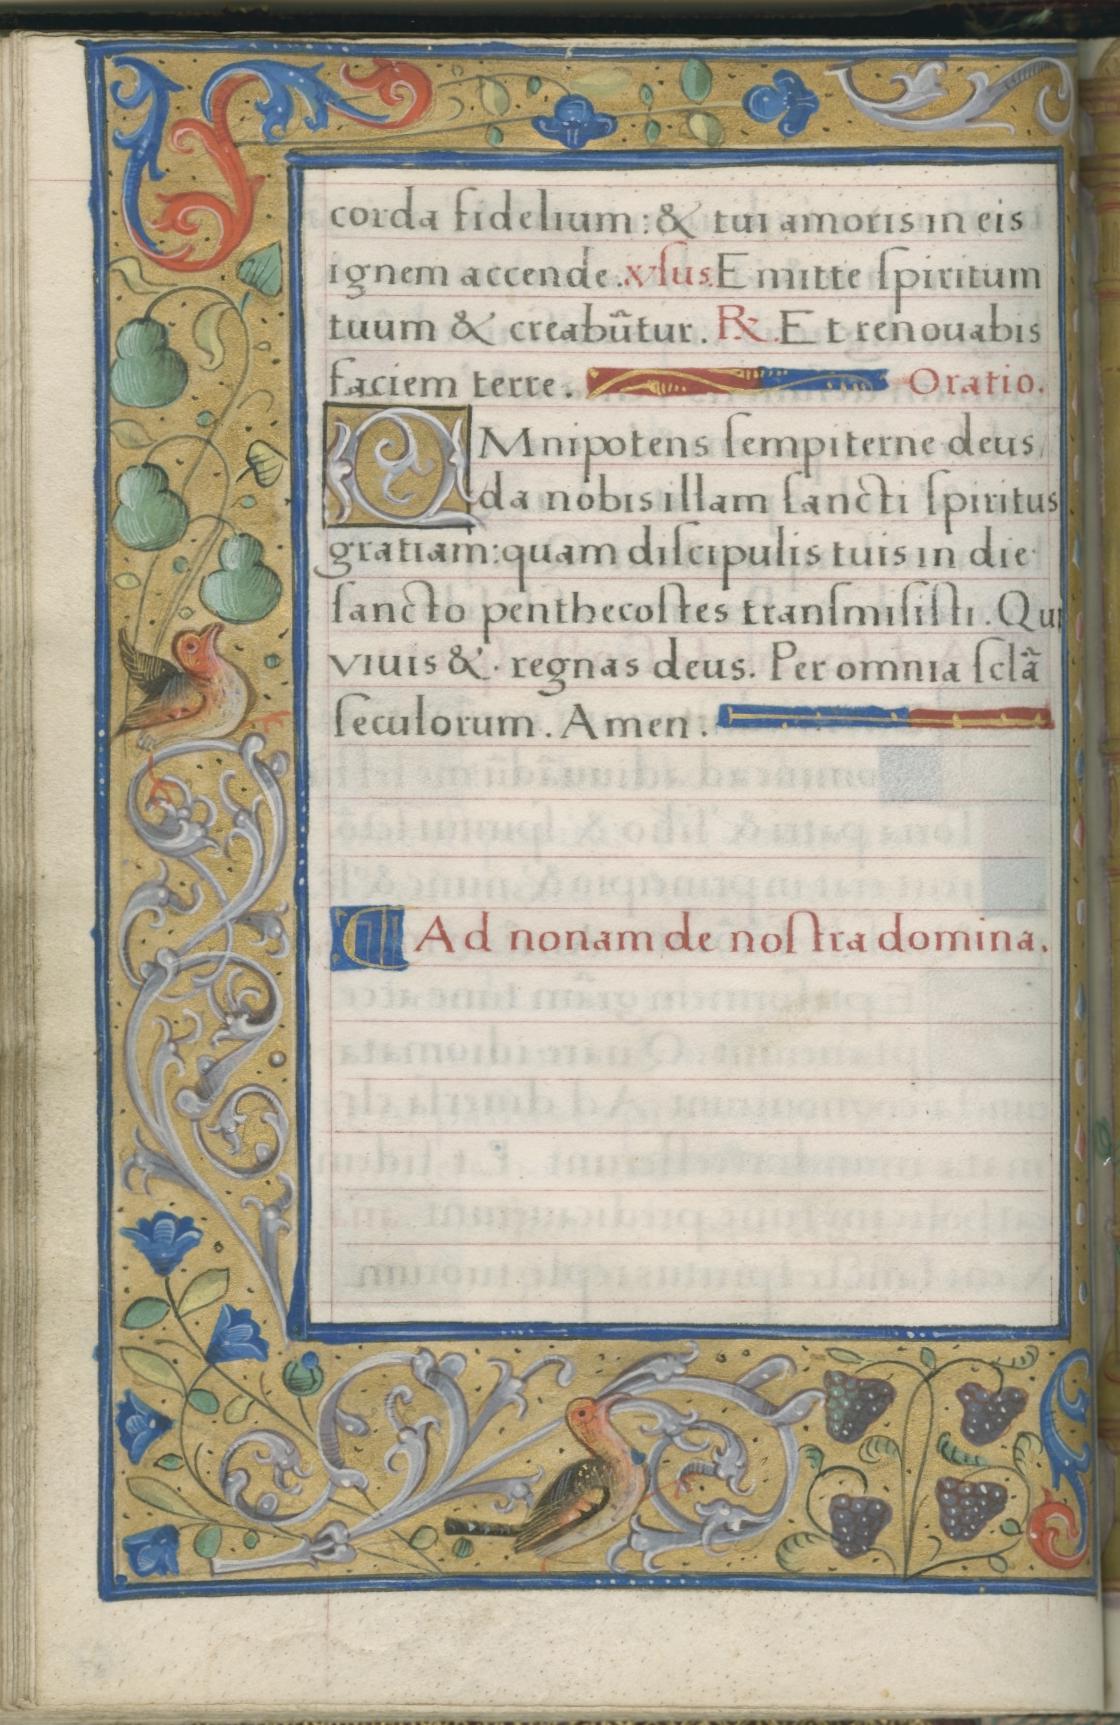 corda fidelium: & tui amoris in eis
ignem accende. xſus. Emitte ſpiritum
tuum & creabũtur. R̷. Et renouabis
faciem terre. Oratio.
OMnipotens ſempiterne deus,
da nobis illam ſancti ſpiritus
gratiam: quam diſcipulis tuis in die
ſancto penthecoſtes tranſmiſiſti. Qui
viuis &. regnas deus. Per omnia ſclã
ſeculorum. Amen.
Ad nonam de noſtra domina.